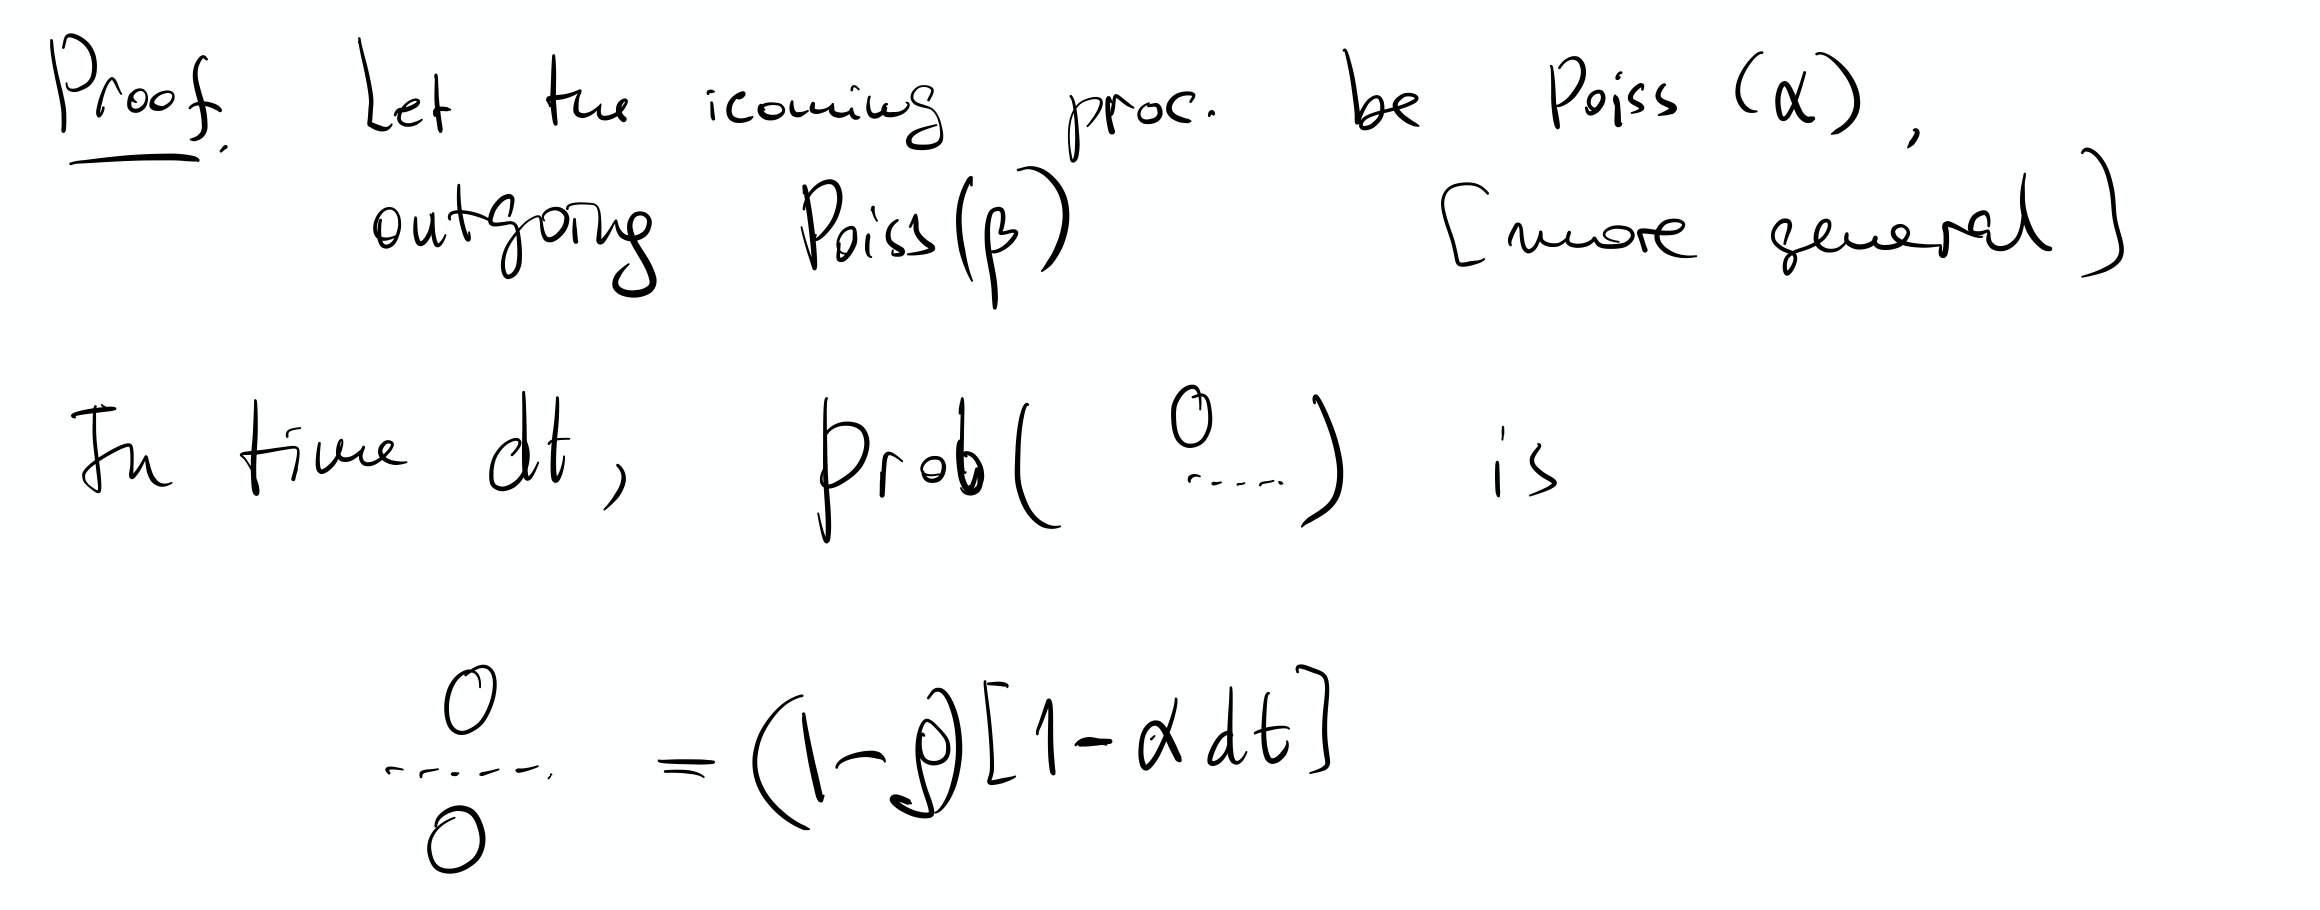 Proof. Let the icoming proc. be Poiss (α),
outgoing Poiss(β) [more general]
In time dt, prob( 0 ..... ) is
0
..... = (1-ρ)[1-α dt]
0